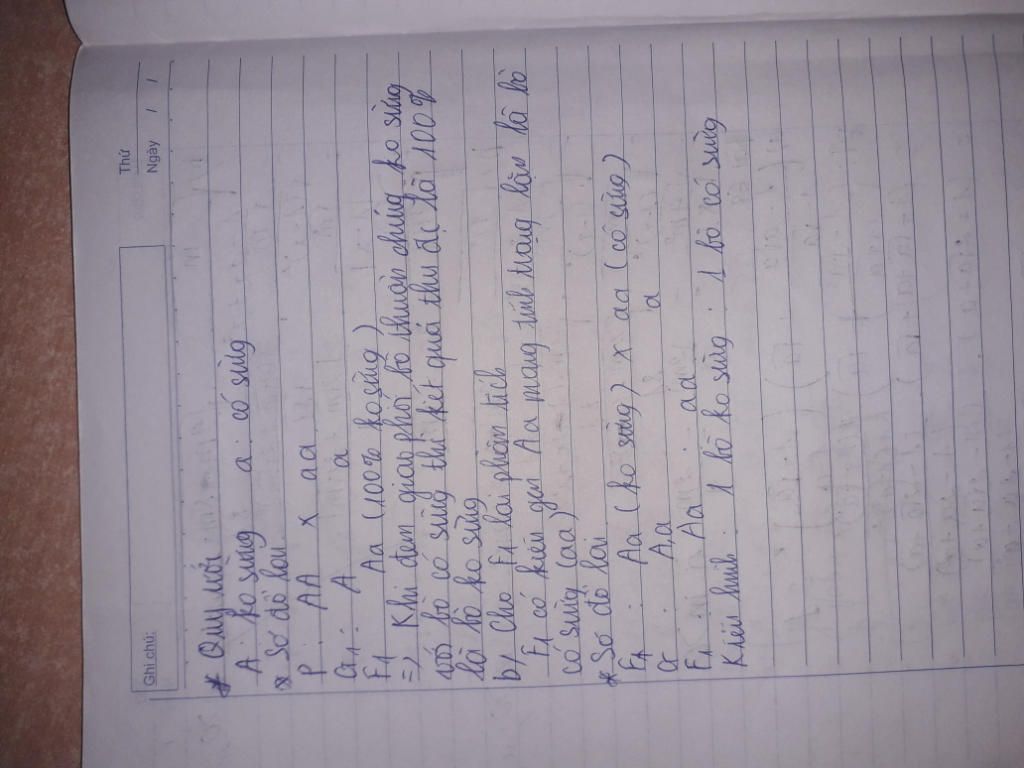 Ghi chú:
Thứ
Ngày / /
* Quy ước
A: ko sừng a: có sừng
* Sơ đồ lai
P: AA x aa
G1: A a
F1 Aa (100% ko sừng)
=> Khi đem giao phối bò thuần chủng ko sừng
với bò có sừng thì kết quả thu đc là 100%
là bò ko sừng
b, Cho F1 lai phân tích
F1 có kiểu gen Aa mang tính trạng lặn là bò
có sừng (aa)
* Sơ đồ lai
F1: Aa (ko sừng) x aa (có sừng)
G: Aa a
F1: Aa : aa
Kiểu hình: 1 bò ko sừng : 1 bò có sừng